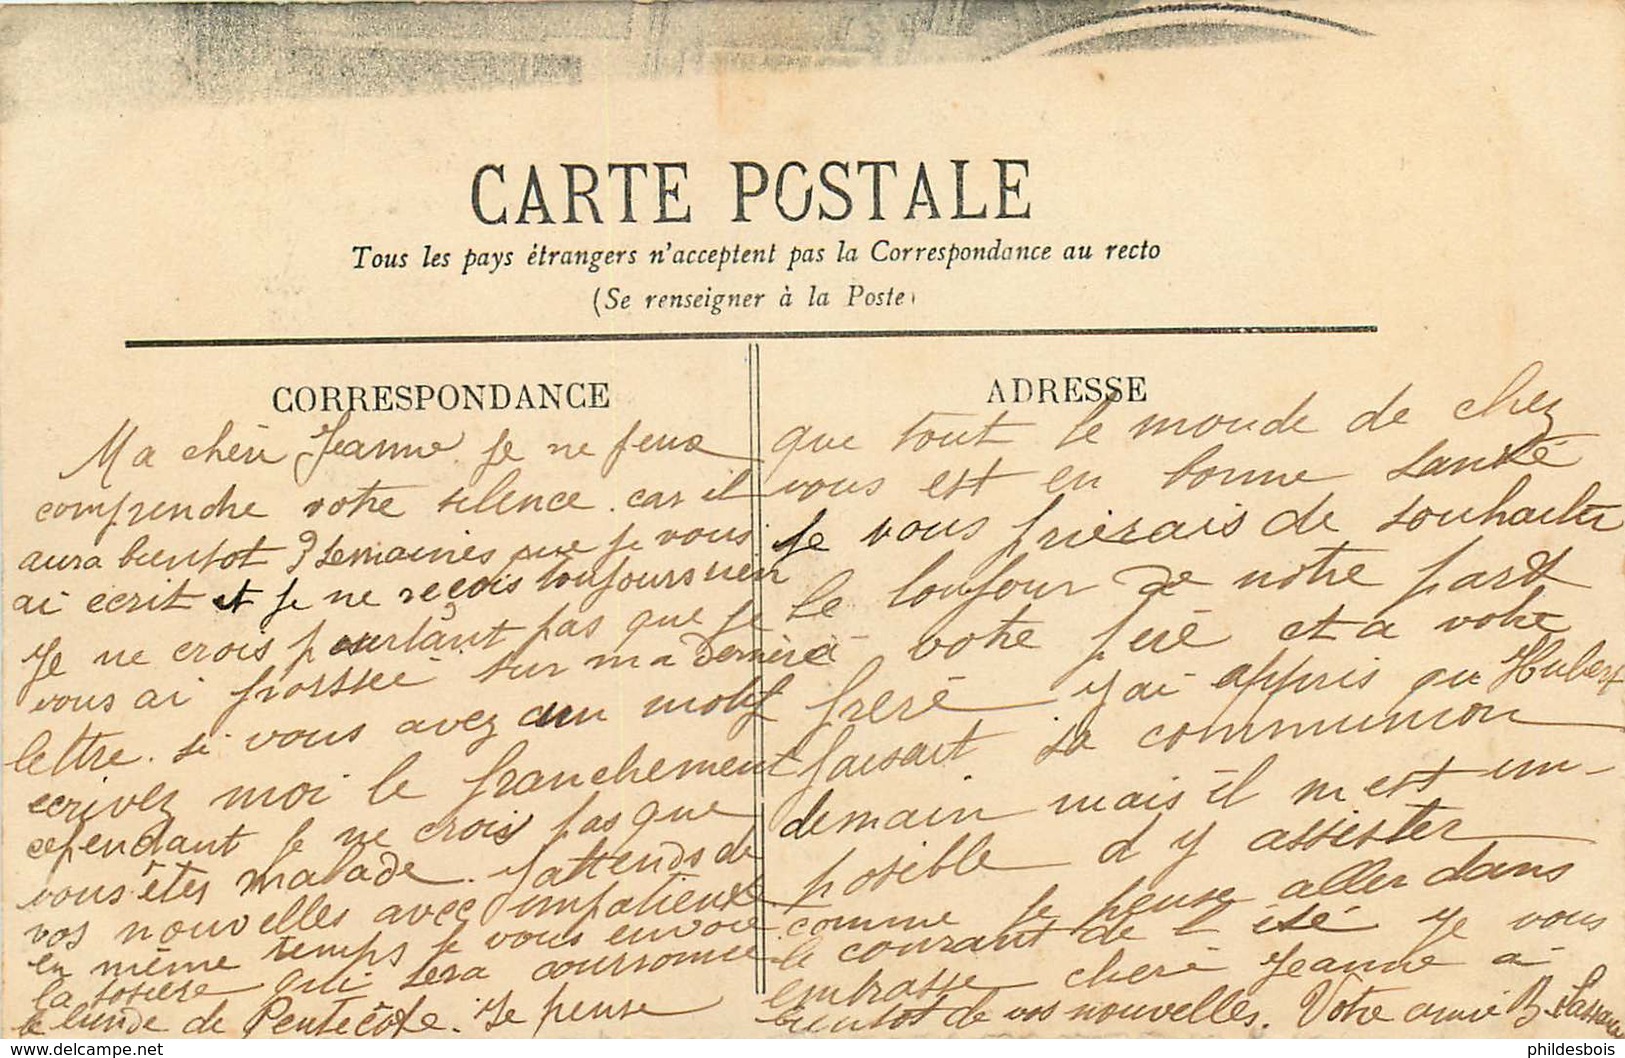 CARTE POSTALE
Tous les pays étrangers n'acceptent pas la Correspondance au recto
(Se renseigner à la Poste)
CORRESPONDANCE
Ma chèri Jeanne je ne peux
comprendre votre silence. car il
aura bientot 3 semaines que je vous
ai ecrit et je ne recois toujours rien
Je ne crois pourtant pas que je
vous ai frossée sur ma dernière
lettre. si vous avez un motif
ecrivez moi le franchement
cependant je ne crois pas que
vous êtes malade. J'attends de
vos nouvelles avec impatience
en même temps je vous envoie
la rosière qui sera couronnée
le lundi de Pentecôte. Je pense
ADRESSE
que tout le monde de chez
vous est en bonne santé
Je vous prierais de souhaiter
le bonjour de notre part
à votre père et a votre
frère j'ai appris qu Hubert
faisait sa communion
demain mais il m est im-
posible d y assister
comme je pense aller dans
le courant de l été je vous
embrasse cheré Jeanne à
bientot de vos nouvelles. Votre amie B.
phildesbois